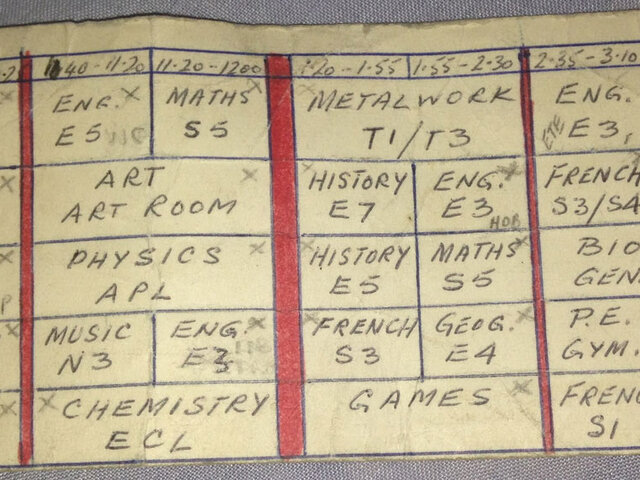 40-11·20 11·20-1200 1·20-1·55 1·55-2·30 2·35-3·10
ENG. MATHS METALWORK ENG.
E5 S5 T1/T3 E3
ART HISTORY ENG. FRENCH
ART ROOM E7 E3 S3/S4
HOB
PHYSICS HISTORY MATHS BIO
APL E5 S5 GEN
MUSIC ENG. FRENCH GEOG. P.E.
N3 E3 S3 E4 GYM.
CHEMISTRY GAMES FREN
ECL S1